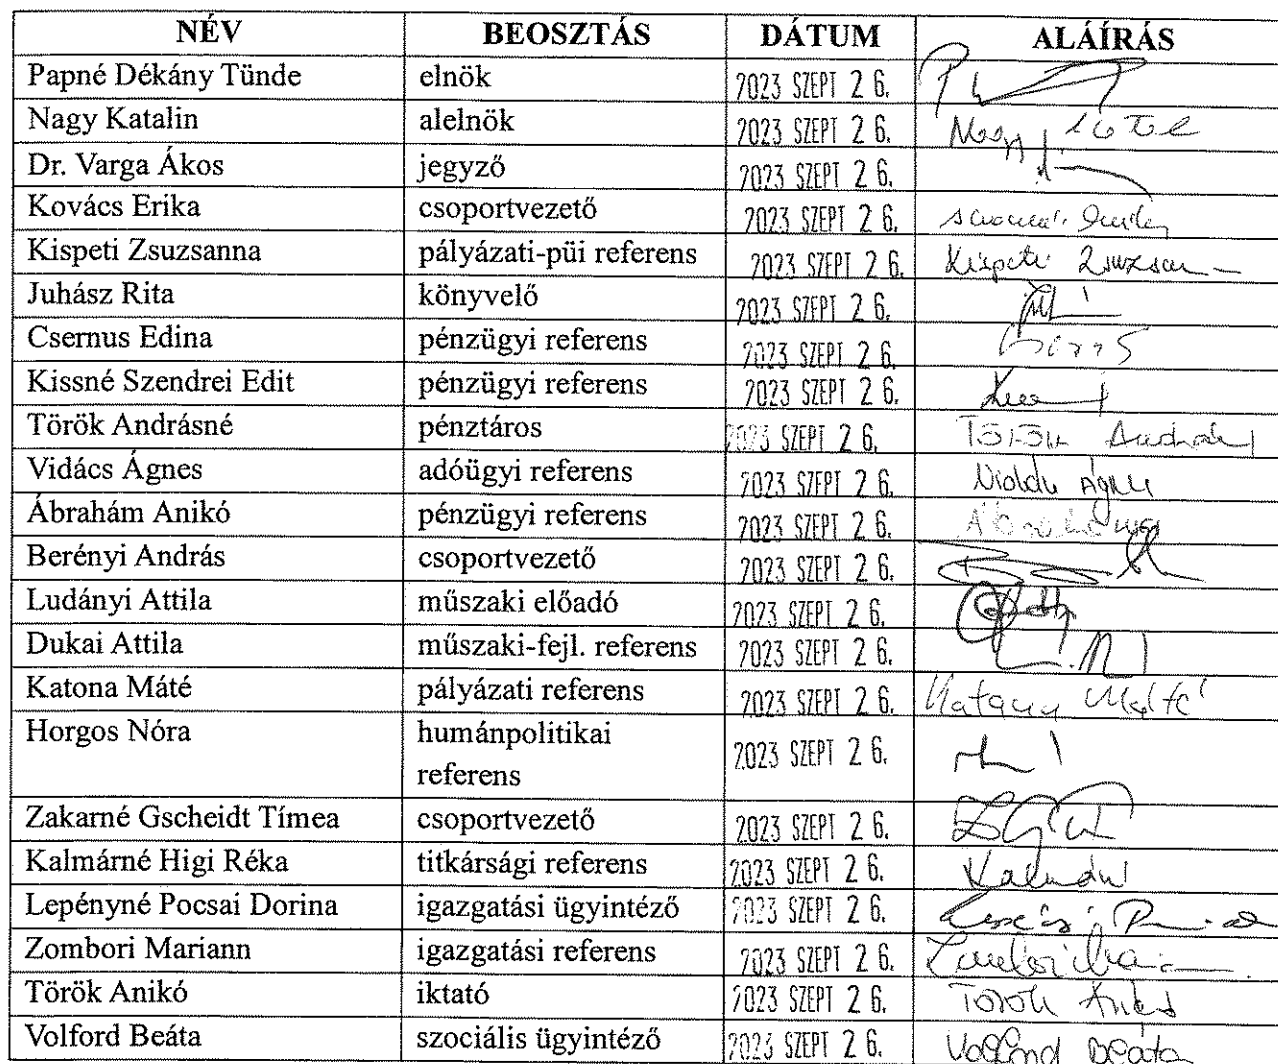 NÉV BEOSZTÁS DÁTUM ALÁÍRÁS
Papné Dékány Tünde elnök 2023 SZEPT 2 6.
Nagy Katalin alelnök 2023 SZEPT 2 6. Nagy
Dr. Varga Ákos jegyző 2023 SZEPT 2 6.
Kovács Erika csoportvezető 2023 SZEPT 2 6.
Kispeti Zsuzsanna pályázati-püi referens 2023 SZEPT 2 6. Kispeti
Juhász Rita könyvelő 2023 SZEPT 2 6.
Csernus Edina pénzügyi referens 2023 SZEPT 2 6.
Kissné Szendrei Edit pénzügyi referens 2023 SZEPT 2 6.
Török Andrásné pénztáros 2023 SZEPT 2 6. Török
Vidács Ágnes adóügyi referens 2023 SZEPT 2 6. Ágnes
Ábrahám Anikó pénzügyi referens 2023 SZEPT 2 6.
Berényi András csoportvezető 2023 SZEPT 2 6.
Ludányi Attila műszaki előadó 2023 SZEPT 2 6.
Dukai Attila műszaki-fejl. referens 2023 SZEPT 2 6.
Katona Máté pályázati referens 2023 SZEPT 2 6. Katona Máté
Horgos Nóra humánpolitikai 2023 SZEPT 2 6.
referens
Zakarné Gscheidt Tímea csoportvezető 2023 SZEPT 2 6.
Kalmárné Higi Réka titkársági referens 2023 SZEPT 2 6.
Lepényné Pocsai Dorina igazgatási ügyintéző 2023 SZEPT 2 6.
Zombori Mariann igazgatási referens 2023 SZEPT 2 6.
Török Anikó iktató 2023 SZEPT 2 6. Török Anikó
Volford Beáta szociális ügyintéző 2023 SZEPT 2 6. Volford Beáta